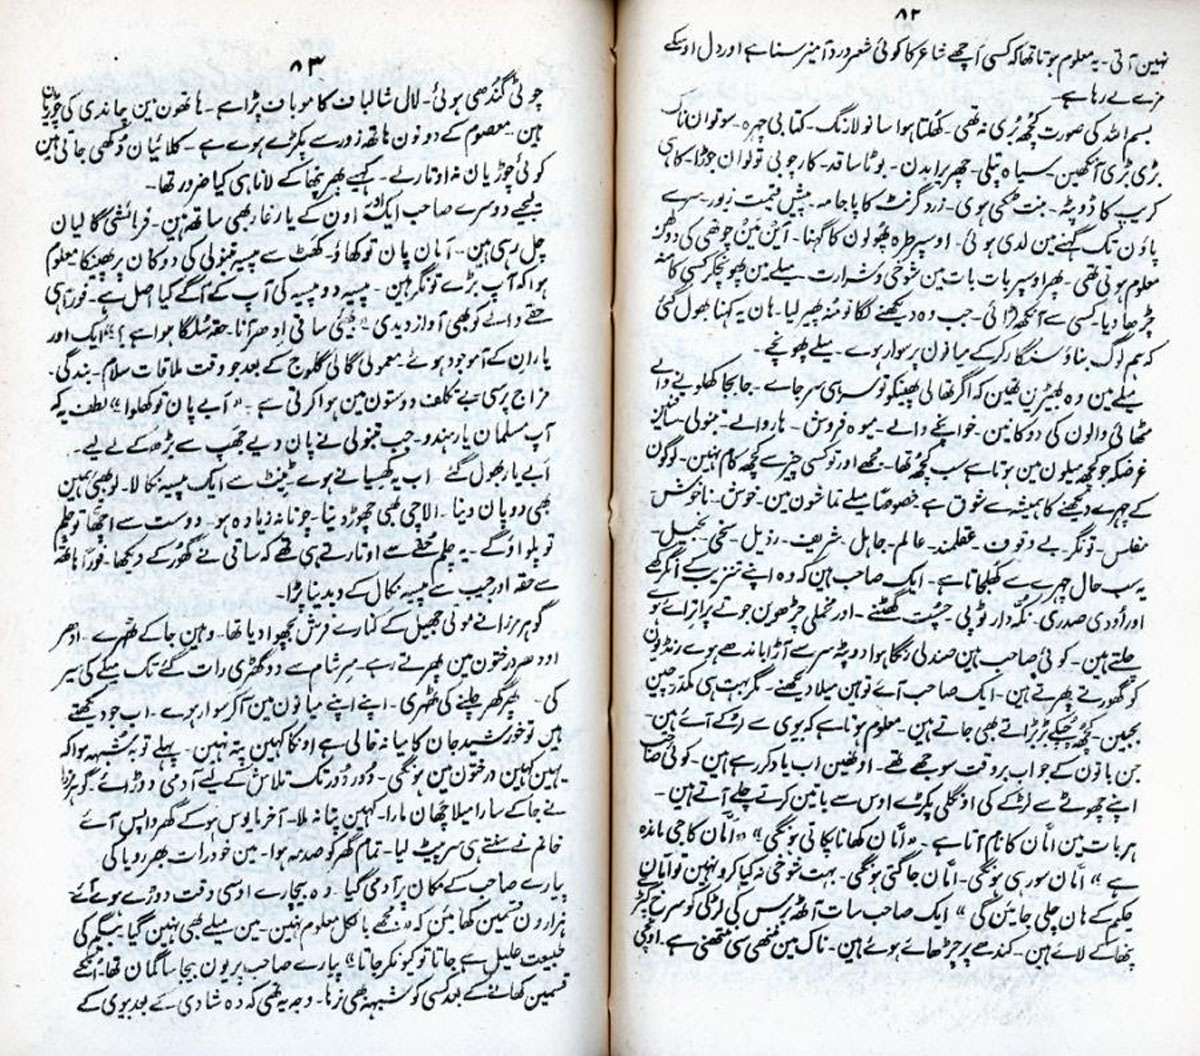 ۸۲
نہین آتی۔ یہ معلوم ہوتا تھا کہ کسی اچھے شاعر کا کوئی شعر درد آمیز سنا ہے اور دل اوسکے
مزے لے رہا ہے۔
بسم اللہ کی صورت کچھ بُری نہ تھی۔ کھُلتا ہوا سانولا رنگ۔ کتابی چہرہ۔ ستوان ناک
بڑی بڑی آنکھین۔ سیاہ پتلی۔ چھریرا بدن۔ بوٹا سا قد۔ کارچوبی تولوان جوڑا۔ کاہی
کریپ کا دُوپٹہ۔ بنت ٹکی ہوی۔ زرد گرنٹ کا پاجامہ۔ بیش قیمت زیور۔ سر سے
پاؤن تک گہنے مین لدی ہوئی۔ اوسپر طرہ پھولون کا گہنا۔ آئین مین چوتھی کی دولھن
معلوم ہوتی تھی۔ پھر اوسپر بات بات مین شوخی و شرارت۔ میلے مین پھونچکر کسی کا منہ
چڑھا دیا۔ کسی سے آنکھ لڑائی۔ جب وہ دیکھنے لگا تو منہ پھیر لیا۔ ہان یہ کہنا بھول گئی
کہ ہم لوگ بناؤ سنگار کر کے میانون پر سوار ہوے۔ میلے پھونچے۔
میلے مین وہ بھیڑین تھین کہ اگر تھالی پھینکو تو سر ہی سر جاے۔ جا بجا کھلونے والے
مٹھائی والون کی دوکانین۔ خوانچے والے۔ میوہ فروش۔ ہار والے۔ تنبولی۔ ساقنین
غرضکہ جو کچھ میلون مین ہوتا ہے سب کچھ تھا۔ مجھے اور تو کسی چیز سے کچھ کام نہین۔ لوگون
کے چہرے دیکھنے کا ہمیشہ سے شوق ہے خصوصاً میلے تماشون مین۔ خوش۔ ناخوش
مفلس۔ تونگر۔ بے وقوف۔ عقلمند۔ عالم۔ جاہل۔ شریف۔ رذیل۔ سخی۔ بخیل۔
یہ سب حال چہرے سے کھلجاتا ہے۔ ایک صاحب ہین کہ وہ اپنے تنزیب کے انگرکھے
اور اُودی صدری۔ نکّہ دار ٹوپی۔ چست گھٹنے۔ اور مخملی چڑھوین جوتے پر اتراے ہوے
چلتے ہین۔ کوئی صاحب ہین صندلی رنگا ہوا دوپٹہ سر سے آڑا باندھے ہوے رنڈیون
کو گھورتے پھرتے ہین۔ ایک صاحب آئے تو ہین میلا دیکھنے۔ مگر بہت ہی مکدر جبین
بجبین۔ کچھ چپکے چپکے بڑبڑاتے بھی جاتے ہین۔ معلوم ہوتا ہے کہ بیوی سے لڑ کے آئے ہین۔
جن باتون کے جواب بر وقت سوجھے نہ تھے۔ اونھین اب یاد کر رہے ہین۔ کوئی صاحب
اپنے چھوٹے سے لڑکے کی اونگلی پکڑے اوس سے باتین کرتے چلے آتے ہین۔
ہر بات مین امّان کا نام آتا ہے۔ "امّان کھانا پکاتی ہونگی" "امّان کا جی ماندہ
ہے" امّان سو رہی ہونگی۔ امّان جاگتی ہونگی۔ بہت شوخی نہ کیا کرو نہین تو امّان
حکیم کے ہان چلی جائین گی" ایک صاحب سات آٹھ برس کی لڑکی کو سرخ کپڑے
پنھا کے لائے ہین۔ کندھے پر چڑھاے ہوئے ہین۔ ناک مین ننھی سی نتھنی ہے۔ اونچی
۸۳
چوٹی گندھی ہوئی۔ لال شالباف کا موباف پڑا ہے۔ ہاتھون مین چاندی کی چوڑیان
ہین۔ معصوم کے دونون ہاتھ زور سے پکڑے ہوے ہے۔ کلائیان دُکھی جاتی ہین
کوئی چوڑیان نہ اوتار لے۔ کہیے پھر پنھا کے لانا ہی کیا ضرور تھا۔
لیجیے دوسرے صاحب ایک اور اون کے یار غار بھی ساتھ ہین۔ فرمائشی گالیان
چل رہی ہین۔ امان پان تو کھاؤ۔ کھٹ سے پیسہ تنبولی کی دوکان پر پھینکا معلوم
ہوا کہ آپ بڑے تونگر ہین۔ پیسہ دو پیسہ کی آپ کے آگے کیا اصل ہے۔ فوراً ہی
حقے والے کو بھی آواز دیدی "بھئی ساقی ادھر آنا۔ حقہ سُلگا ہوا ہے؟" ایک اور
یار ان کے آ موجود ہوئے۔ معمولی گالی گلوج کے بعد جو وقت ملاقات سلام۔ بندگی۔
مزاج پرسی بے تکلف دوستون مین ہوا کرتی ہے۔ "ابے پان تو کھلوا" لطف یہ کہ
آپ مسلمان یار ہندو۔ جب تنبولی نے پان دیے جھپ سے بڑھ کے لے لیے۔
ابے یار بھول گئے اب یہ کھسیانے ہوے ٹینٹ سے ایک پیسہ نکالا۔ لو بھئی ہمین
بھی دو پان دینا۔ الاچی بھی چھوڑ دینا۔ چونا نہ زیادہ ہو۔ دوست سے اچھا تو چلم
تو پلواؤ گے۔ یہ چلم حقے سے اوتارتے ہی تھے کہ ساقی نے گھور کے دیکھا۔ فوراً ہاتھ
سے حقہ اور جیب سے پیسہ نکال کے دیدینا پڑا۔
گوہر مرزا نے موتی جھیل کے کنارے فرش بچھوا دیا تھا۔ وہین جا کے ٹھہرے۔ ادھر
اودھر درختون مین پھرتے رہے۔ سر شام سے دو گھڑی رات گئے تک میلے کی سیر
کی۔ پھر گھر چلنے کی ٹھہری۔ اپنے اپنے میانون مین آ کر سوار ہوے۔ اب جو دیکھتے
ہین تو خورشید جان کا میانہ خالی ہے اونکا کہین پتہ نہین۔ پہلے تو یہ شبہہ ہوا کہ
یہین کہین درختون مین ہونگی۔ دور دور تک تلاش کے لیے آدمی دوڑائے۔ گوہر مرزا
نے جا کے سارا میلا چھان مارا۔ کہین پتا نہ ملا۔ آخر مایوس ہو کے گھر واپس آئے
خانم نے سنتے ہی سر پیٹ لیا۔ تمام گھر کو صدمہ ہوا۔ مین خود رات بھر رویا کی
پیارے صاحب کے مکان پر آدمی گیا۔ وہ بیچارے اوسی وقت دوڑے ہوئے آئے
ہزارون قسمین کھائین کہ "مجھے بالکل معلوم نہین۔ مین میلے بھی نہین گیا بیگم کی
طبیعت علیل ہے جاتا تو کیونکر جاتا" پیارے صاحب پر یون بیجا سا گمان تھا۔ انکے
قسمین کھانے کے بعد کسی کو شبہہ بھی نہ رہا۔ وجہ یہ تھی کہ وہ شادی کے بعد بیوی کے